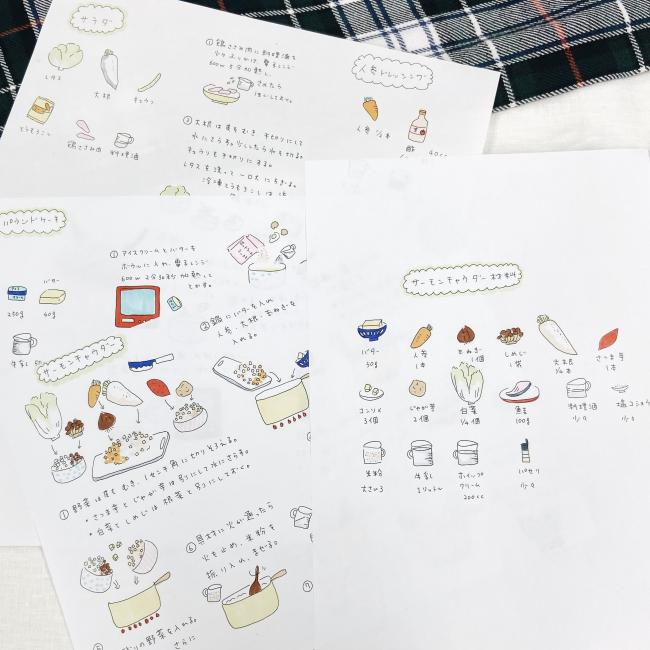 サラダ
レタス
大根
きゅうり
とうもろこし
鶏ささみ肉
料理酒
① 鶏ささみ肉に料理酒を
少々ふりかけ 電子レンジ
600w 5分加熱し
さめたら
ほぐしておく。
② 大根は皮をむき 千切りにして
水にさらす。少ししたら水を切る。
きゅうりも千切りにする。
レタスを洗って一口大にちぎる。
冷凍とうもろこしは
人参ドレッシング
人参 1/2本
酢 40cc
パウンドケーキ
バター
250g
60g
牛乳
① アイスクリームとバターを
ボウルに入れ、電子レンジ
600w 2分30秒 加熱して
とかす。
サーモンチャウダー
① 野菜は皮をむき、1センチ角に切りそろえる。
・さつま芋とじゃが芋は別々にして水にさらす。
・白菜としめじは根菜と別にしておく。
② 鍋にバターを入れ
人参・大根・玉ねぎを
入れる。
りの野菜を入れる。
さらに
⑥ 具材に火が通ったら
火を止め、米粉を
振り入れ、まぜる。
サーモンチャウダー材料
バター
50g
人参
1本
玉ねぎ
1個
しめじ
1袋
大根
1/4本
さつま芋
1本
コンソメ
3個
じゃが芋
2個
白菜
1/4個
鮭
100g
料理酒
少々
塩コショウ
少々
米粉
大さじ3
牛乳
1リットル
ホイップ
クリーム
200cc
パセリ
少々